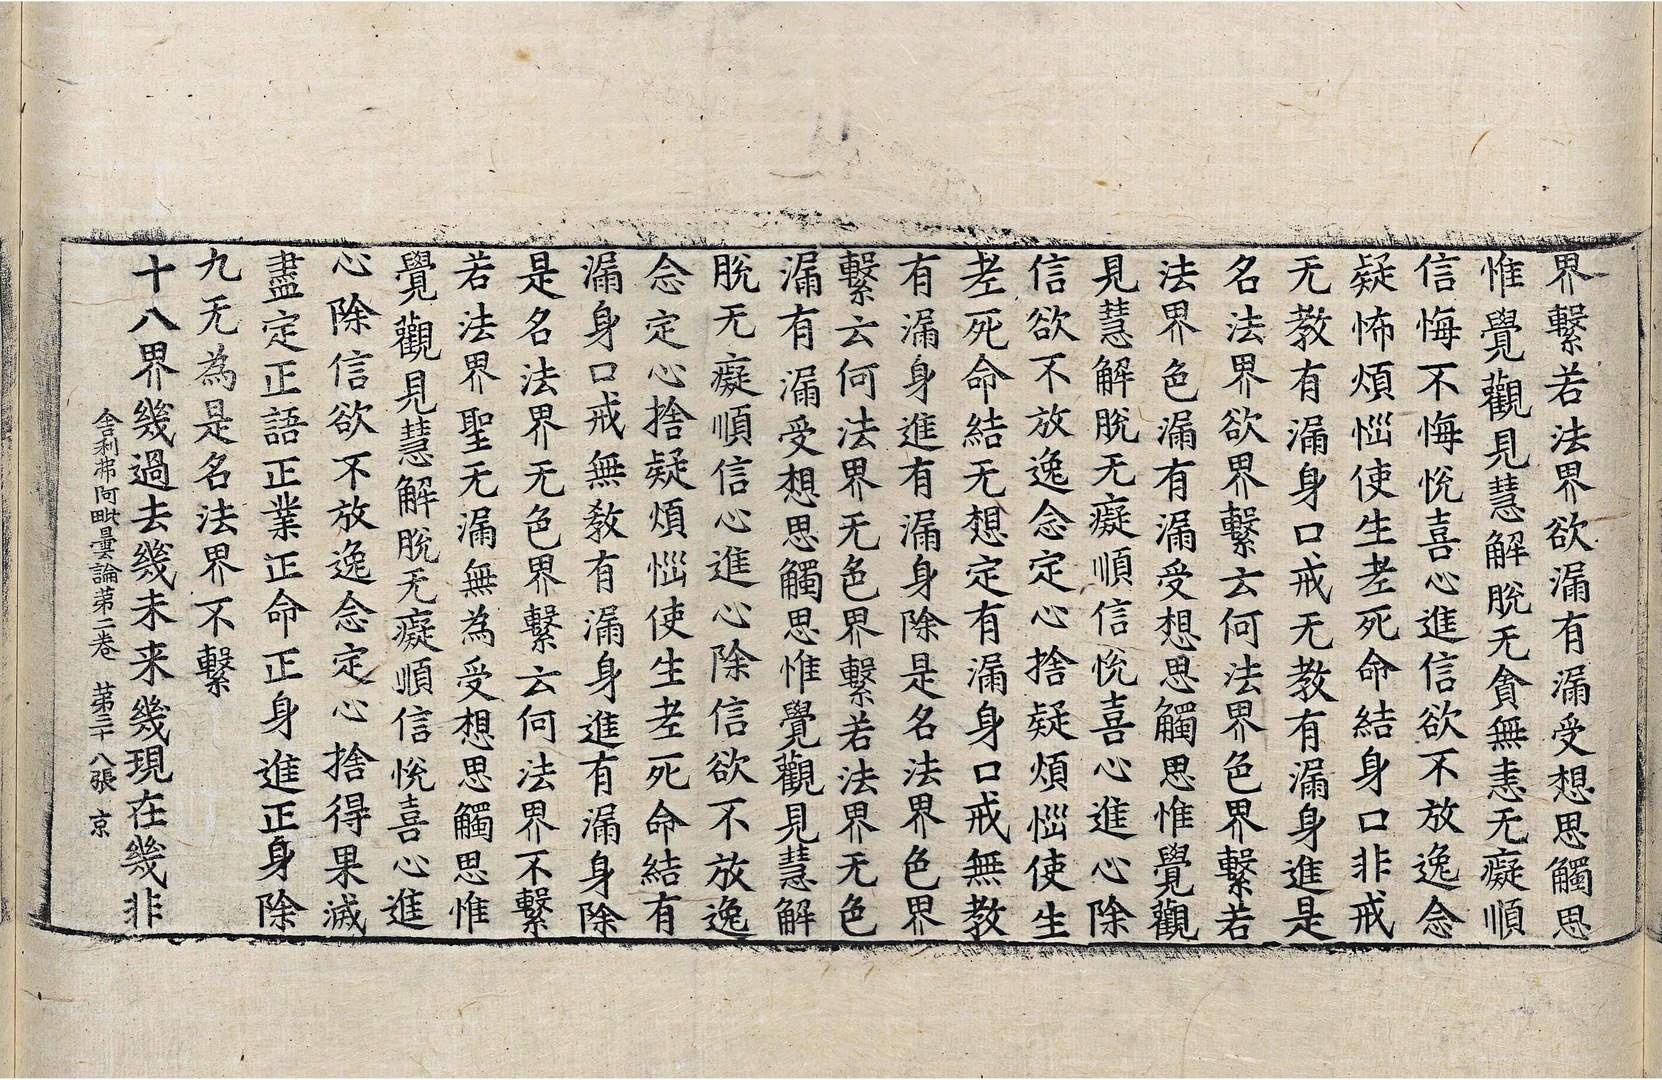 界繫若法界欲漏有漏受想思觸思
惟覺觀見慧解脫无貪無恚无癡順
信悔不悔悅喜心進信欲不放逸念
疑怖煩惱使生老死命結身口非戒
无教有漏身口戒无教有漏身進是
名法界欲界繫云何法界色界繫若
法界色漏有漏受想思觸思惟覺觀
見慧解脫无癡順信悅喜心進心除
信欲不放逸念定心捨疑煩惱使生
老死命結无想定有漏身口戒無教
有漏身進有漏身除是名法界色界
繫云何法界无色界繫若法界无色
漏有漏受想思觸思惟覺觀見慧解
脫无癡順信心進心除信欲不放逸
念定心捨疑煩惱使生老死命結有
漏身口戒無教有漏身進有漏身除
是名法界无色界繫云何法界不繫
若法界聖无漏無為受想思觸思惟
覺觀見慧解脫无癡順信悅喜心進
心除信欲不放逸念定心捨得果滅
盡定正語正業正命正身進正身除
九无為是名法界不繫
十八界幾過去幾未来幾現在幾非
舍利弗阿毗曇論第二卷　第二十八張　京